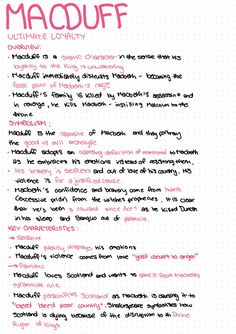 MACDUFF
ULTIMATE LOYALTY
OVERVIEW:
• Macduff is a static character in the sense that his
loyalty to the King is unwavering
• Macduff immediately distrusts Macbeth - becoming the
focal point of Macbeth's rage
• Macduff's family is killed by Macbeth's assassins and
in revenge, he kills Macbeth - instilling Malcolm to the
throne
SYMBOLISM:
Macduff is the opposite of Macbeth and they portray
the good vs evil archetype
• Macduff adopts an opposing definition of manhood to Macbeth
as he embraces his emotions instead of restraining them,
• His bravery is selfless and out of love of his country, his
violence is for a justified cause.
• Macbeth's confidence and bravery come from hubris
(excessive pride) from the witches prophecies, it is clear
that he's been a coward since Act as he killed Duncan
in his sleep and Banquo out of paranoia.
KEY CHARACTERISTICS:
→ Emotive
• Macduff publicly displays his emotions
• Macduff's violence comes from love "grief convert to anger"
→ Patriotic
• Macduff loves Scotland and wants to save it from Macbeth's
tyrannical rule.
• Macduff personifies Scotland as Macbeth is causing it to
"bleed bleed poor country". Shakespeare symbolises how
Scotland is dying because of the disruption to the Divine
Right of Kings